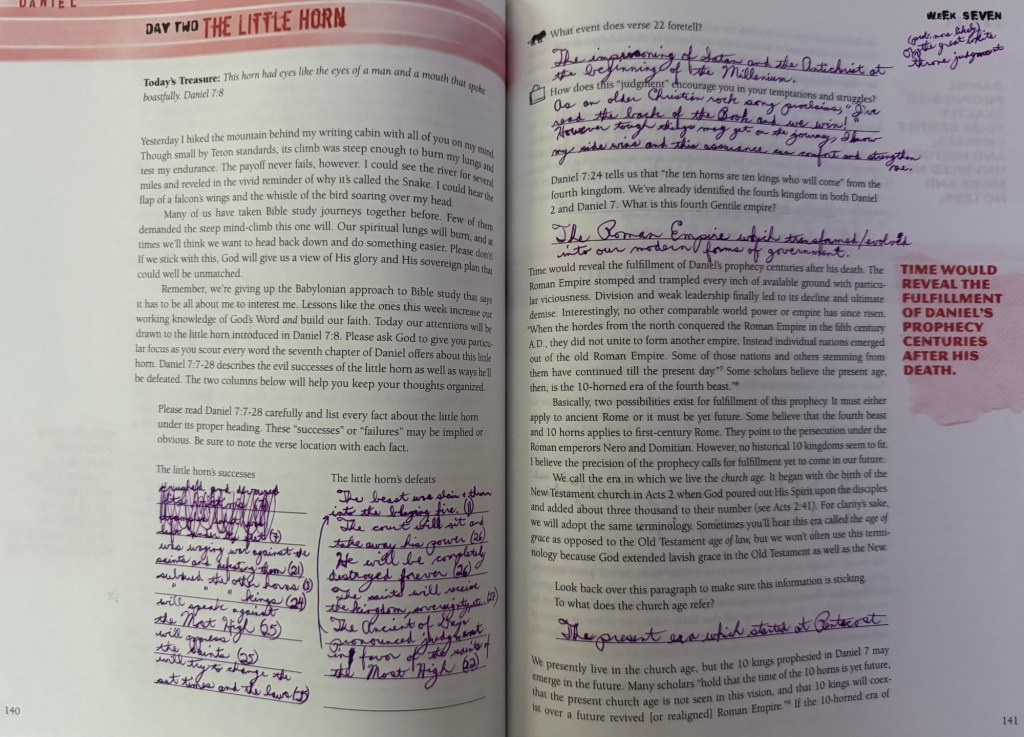 DANIEL
DAY TWO THE LITTLE HORN
Today's Treasure: This horn had eyes like the eyes of a man and a mouth that spoke
boastfully. Daniel 7:8
Yesterday I hiked the mountain behind my writing cabin with all of you on my mind.
Though small by Teton standards, its climb was steep enough to burn my lungs and
test my endurance. The payoff never fails, however. I could see the river for several
miles and reveled in the vivid reminder of why it's called the Snake. I could hear the
flap of a falcon's wings and the whistle of the bird soaring over my head.
Many of us have taken Bible study journeys together before. Few of them
demanded the steep mind-climb this one will. Our spiritual lungs will burn, and at
times we'll think we want to head back down and do something easier. Please don't!
If we stick with this, God will give us a view of His glory and His sovereign plan that
could well be unmatched.
Remember, we're giving up the Babylonian approach to Bible study that says
it has to be all about me to interest me. Lessons like the ones this week increase our
working knowledge of God's Word and build our faith. Today our attentions will be
drawn to the little horn introduced in Daniel 7:8. Please ask God to give you particu-
lar focus as you scour every word the seventh chapter of Daniel offers about this little
horn. Daniel 7:7-28 describes the evil successes of the little horn as well as ways he'll
be defeated. The two columns below will help you keep your thoughts organized.
Please read Daniel 7:7-28 carefully and list every fact about the little horn
under its proper heading. These "successes" or "failures" may be implied or
obvious. Be sure to note the verse location with each fact.
The little horn's successes
crushed and devoured
(7)
was waging war against the
saints and defeating them (21)
subdued the other horns
" " " kings (24)
will speak against
the Most High (25)
will oppress
the saints (25)
will try to change the
set times and the laws
The little horn's defeats
The beast was slain & thrown
into the blazing fire. (11)
The court will sit and
take away his power (26)
He will be completely
destroyed forever (26)
The saints will receive
the kingdom, sovereignty, etc (27)
The Ancient of Days
pronounced judgment
in favor of the saints of
the Most High (22)
140
WEEK SEVEN
What event does verse 22 foretell?
(prob. more likely)
Or the great white
throne judgment
The imprisoning of Satan and the Antichrist at
the beginning of the Millenium.
How does this "judgment" encourage you in your temptations and struggles?
As an older Christian rock song proclaims, "I've
read the back of the Book and we win!"
However tough things may get on the journey, I know
my side wins and this assurance can comfort and strengthen
me.
Daniel 7:24 tells us that "the ten horns are ten kings who will come" from the
fourth kingdom. We've already identified the fourth kingdom in both Daniel
2 and Daniel 7. What is this fourth Gentile empire?
The Roman Empire which transformed/evolved
into our modern forms of government.
Time would reveal the fulfillment of Daniel's prophecy centuries after his death. The
Roman Empire stomped and trampled every inch of available ground with particu-
lar viciousness. Division and weak leadership finally led to its decline and ultimate
demise. Interestingly, no other comparable world power or empire has since risen.
"When the hordes from the north conquered the Roman Empire in the fifth century
A.D., they did not unite to form another empire. Instead individual nations emerged
out of the old Roman Empire. Some of those nations and others stemming from
them have continued till the present day."7 Some scholars believe the present age,
then, is the 10-horned era of the fourth beast."8
Basically, two possibilities exist for fulfillment of this prophecy. It must either
apply to ancient Rome or it must be yet future. Some believe that the fourth beast
and 10 horns applies to first-century Rome. They point to the persecution under the
Roman emperors Nero and Domitian. However, no historical 10 kingdoms seem to fit.
I believe the precision of the prophecy calls for fulfillment yet to come in our future.
We call the era in which we live the church age. It began with the birth of the
New Testament church in Acts 2 when God poured out His Spirit upon the disciples
and added about three thousand to their number (see Acts 2:41). For clarity's sake,
we will adopt the same terminology. Sometimes you'll hear this era called the age of
grace as opposed to the Old Testament age of law, but we won't often use this termi-
nology because God extended lavish grace in the Old Testament as well as the New.
TIME WOULD
REVEAL THE
FULFILLMENT
OF DANIEL'S
PROPHECY
CENTURIES
AFTER HIS
DEATH.
Look back over this paragraph to make sure this information is sticking.
To what does the church age refer?
The present era which started at Pentecost
We presently live in the church age, but the 10 kings prophesied in Daniel 7 may
emerge in the future. Many scholars "hold that the time of the 10 horns is yet future,
that the present church age is not seen in this vision, and that 10 kings will coex-
ist over a future revived [or realigned] Roman Empire."9 If the 10-horned era of
141